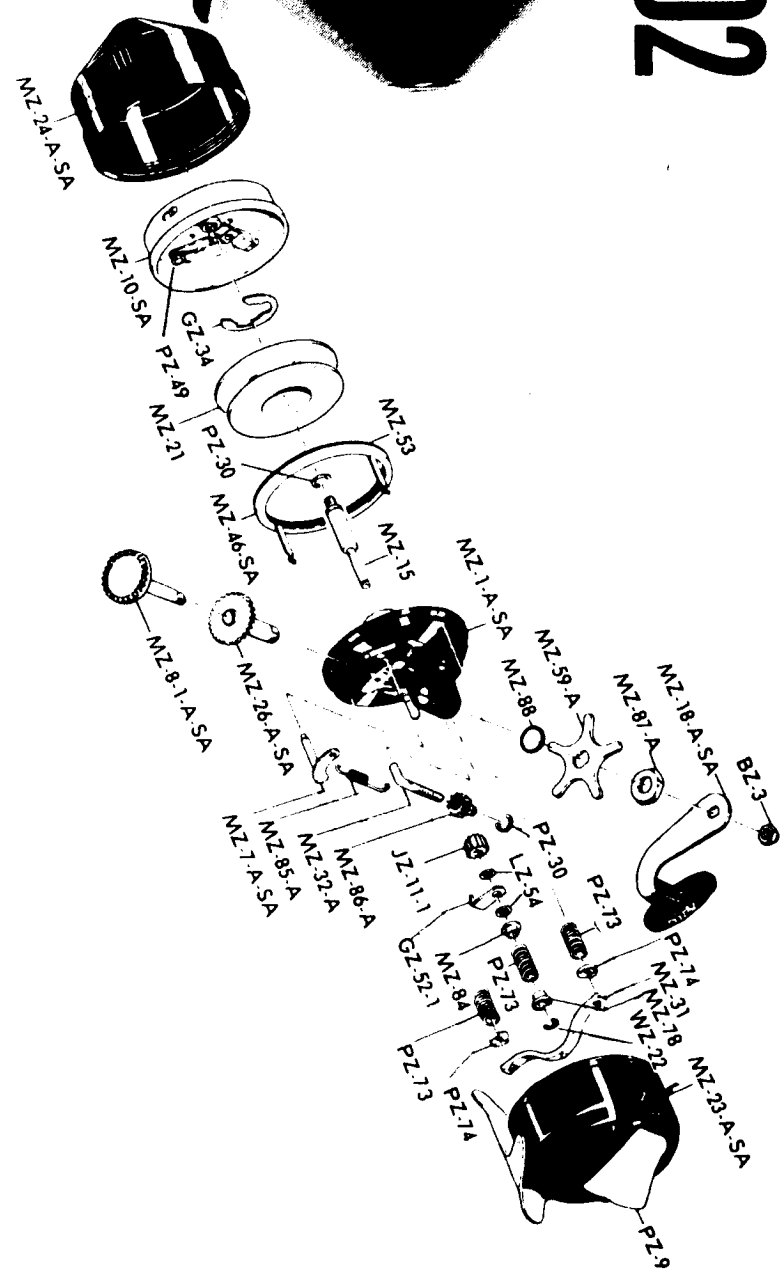 02
MZ-24-A-SA
MZ-10-SA
PZ-49
GZ-34
MZ-21
PZ-30
MZ-46-SA
MZ-53
MZ-15
MZ-8-1-A-SA
MZ-26-A-SA
MZ-1-A-SA
MZ-88
MZ-59-A
MZ-87-A
MZ-18-A-SA
BZ-3
MZ-7-A-SA
MZ-85-A
MZ-32-A
MZ-86-A
PZ-30
JZ-11-1
LZ-54
GZ-52-1
MZ-84
PZ-73
PZ-73
PZ-74
MZ-31
MZ-78
WZ-22
PZ-73
PZ-74
MZ-23-A-SA
PZ-9